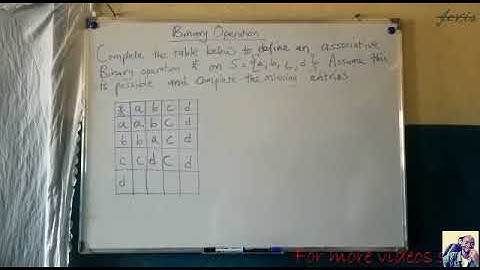 Binary Operation
Complete the table below to define an associative
Binary operation * on S = {a, b, c, d}. Assume this
is possible and complete the missing entries
* a b c d
a a b c d
b b a c d
c c d c d
d
For more videos